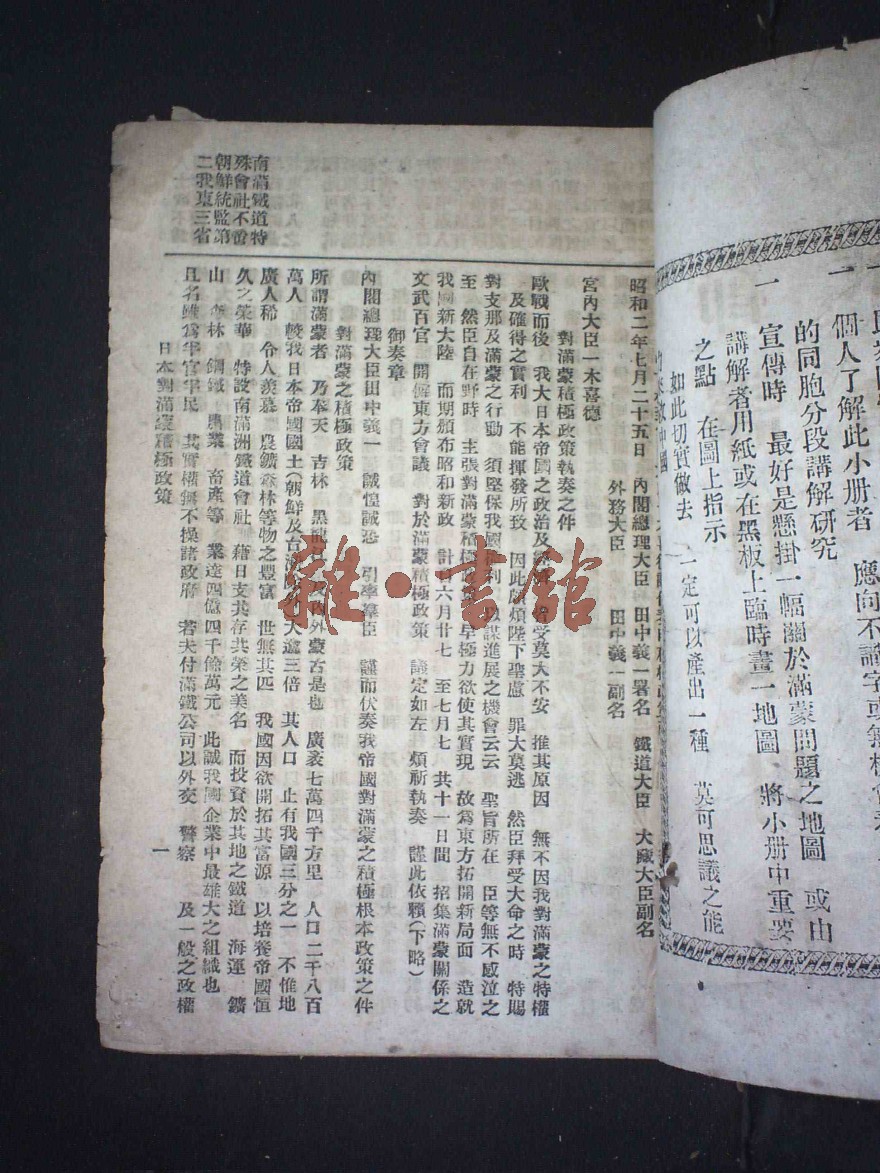 個人了解此小册者　應向不識字或無機會
的同胞分段講解研究
一　宣傳時　最好是懸掛一幅關於滿蒙問題之地圖　或由
講解者用紙或在黑板上臨時畫一地圖　將小册中重要
之點　在圖上指示
如此切實做去　一定可以產出一種　莫可思議之能
昭和二年七月二十五日　內閣總理大臣　田中義一署名　鐵道大臣　大藏大臣副名
外務大臣　田中義一副名
宮內大臣一木喜德
對滿蒙積極政策執奏之件
歐戰而後　我大日本帝國之政治及經濟　皆受莫大不安　推其原因　無不因我對滿蒙之特權
及確得之實利　不能揮發所致　因此頗煩陛下聖慮　罪大莫逃　然臣拜受大命之時　特賜
對支那及滿蒙之行動　須堅保我國權利　以謀進展之機會云云　聖旨所在　臣等無不感泣之
至　然臣自在野時　主張對滿蒙積極政策　早極力欲使其實現　故爲東方拓開新局面　造就
我國新大陸　而期頒布昭和新政　計自六月廿七　至七月七　共十一日間　招集滿蒙關係之
文武百官　開催東方會議　對於滿蒙積極政策　議定如左　煩祈執奏　謹此依賴(下略)
御奏章
內閣總理大臣田中義一　誠惶誠恐　引率羣臣　謹而伏奏我帝國對滿蒙之積極根本政策之件
對滿蒙之積極政策
所謂滿蒙者　乃奉天　吉林　黑龍江　及內外蒙古是也　廣袤七萬四千方里　人口二千八百
萬人　較我日本帝國國土(朝鮮及台灣除外)大逾三倍　其人口　止有我國三分之一　不惟地
廣人稀　令人羨慕　農鑛森林等物之豐富　世無其匹　我國因欲開拓其富源　以培養帝國恒
久之榮華　特設南滿洲鐵道會社　藉日支共存共榮之美名　而投資於其地之鐵道　海運　鑛
山　森林　鋼鐵　農業　畜產等　業達四億四千餘萬元　此誠我國企業中最雄大之組織也
且名雖爲半官半民　其實權無不操諸政府　若夫付滿鐵公司以外交　警察　及一般之政權
南滿鐵道特
殊會社不啻
朝鮮統監第
二我東三省
日本對滿蒙積極政策
一
雜·書館